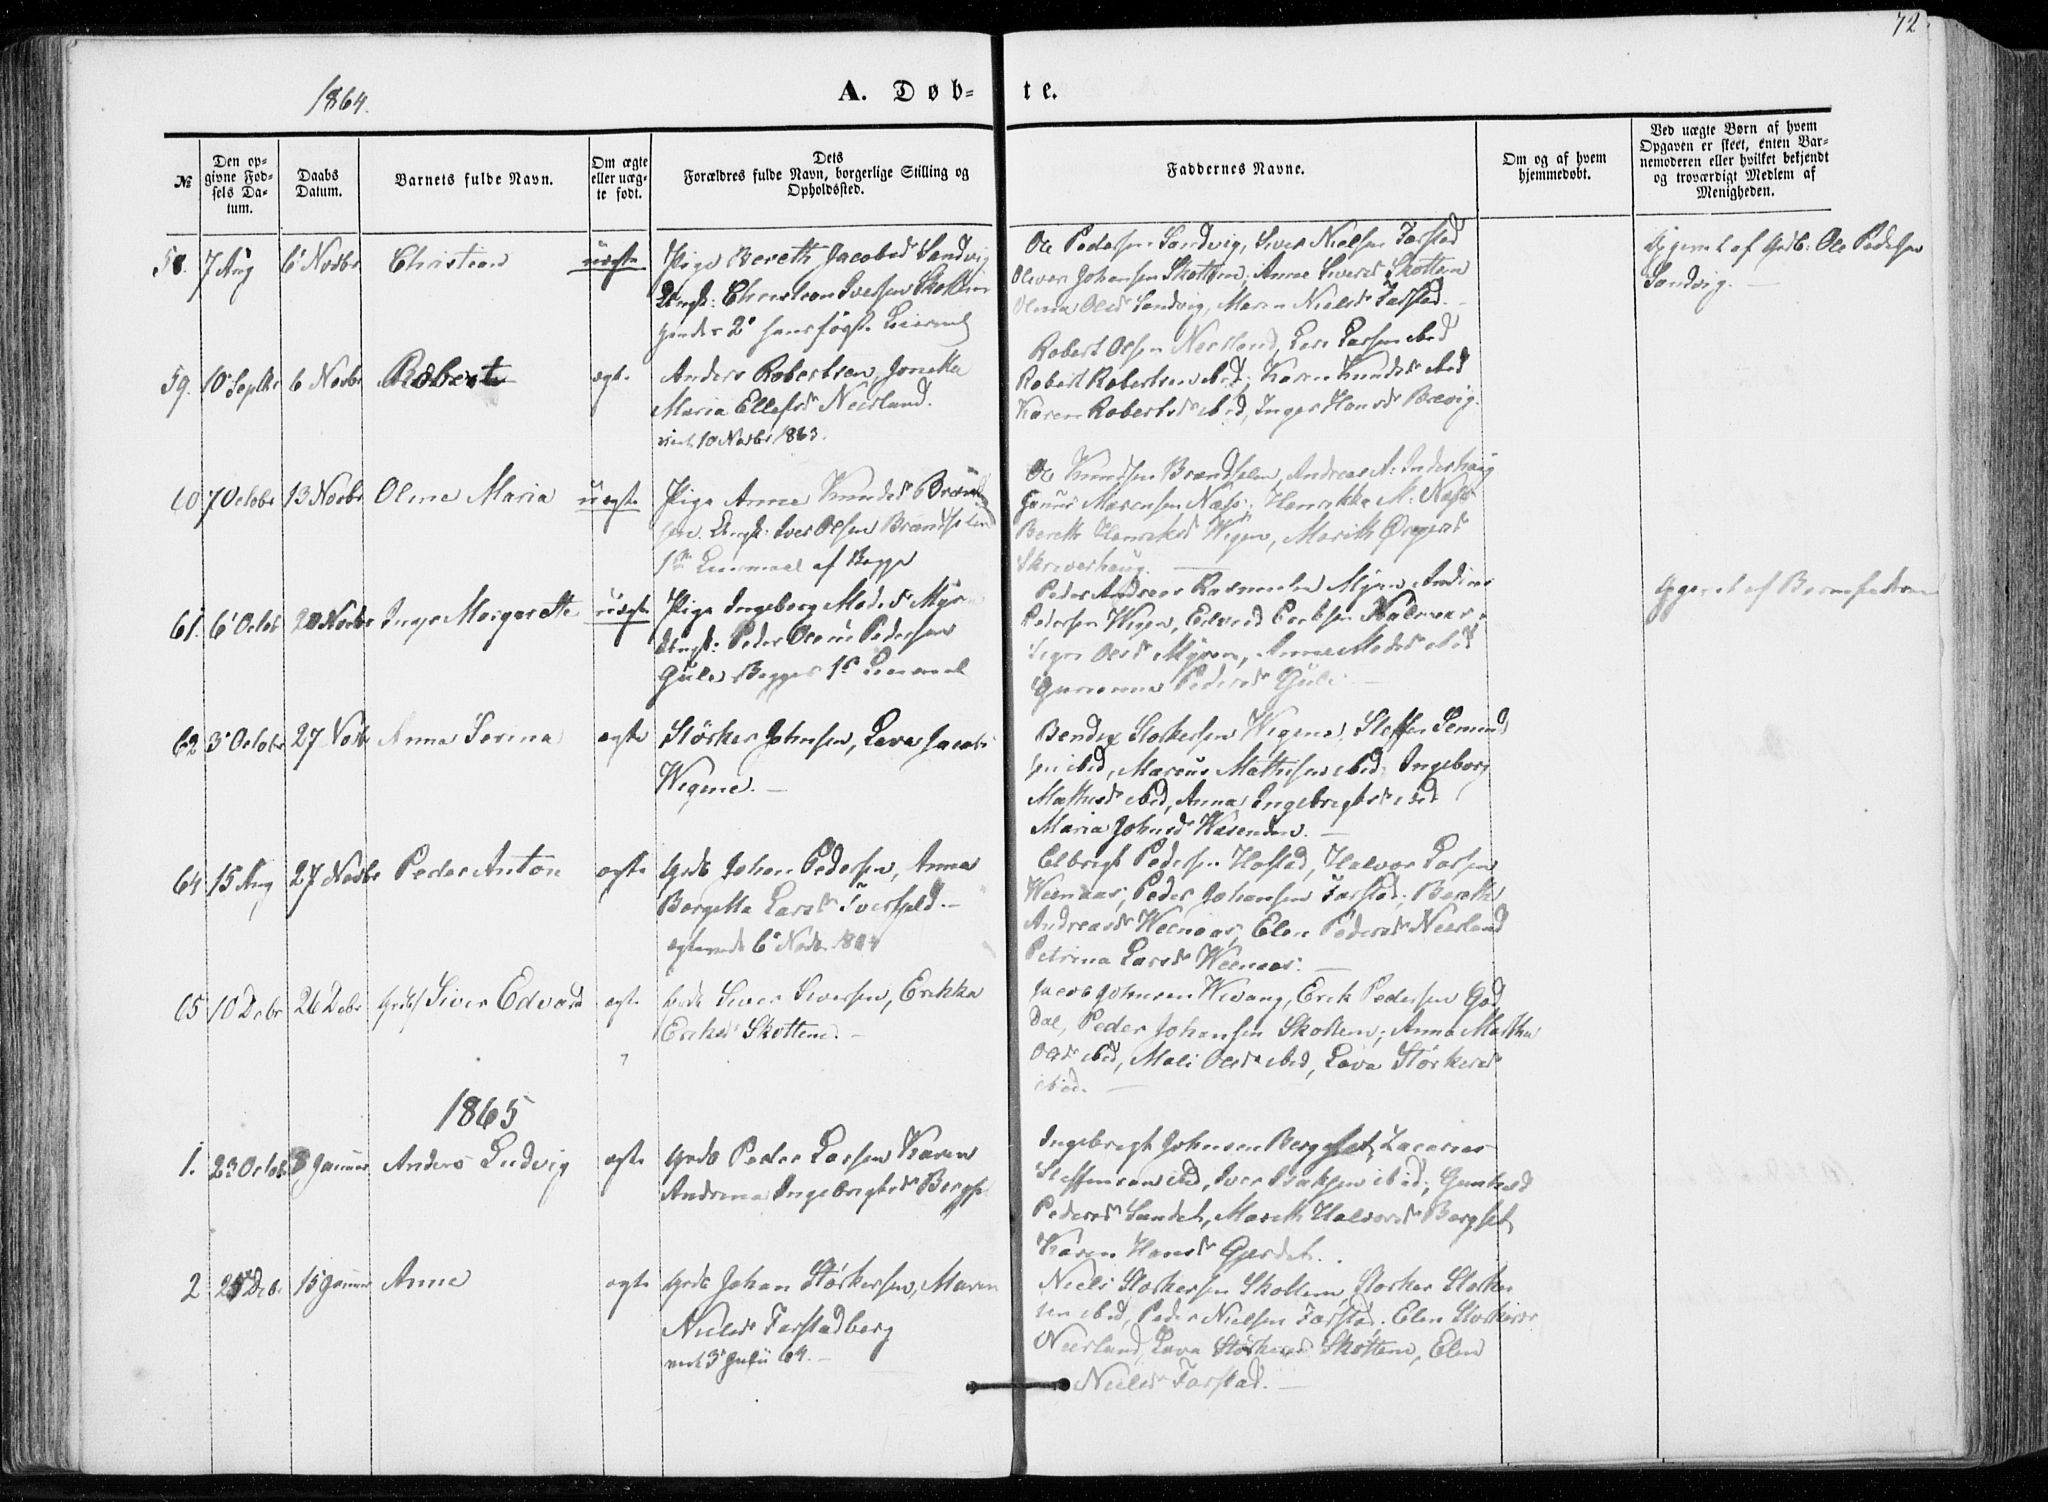 72
1864.
A. Døb-
te.
№
Den op-
givne Fød-
sels Da-
tum.
Daabs
Datum.
Barnets fulde Navn.
Om ægte
eller uæg-
te født.
Dets
Forældres fulde Navn, borgerlige Stilling og
Opholdssted.
Faddernes Navne.
Om og af hvem
hjemmedøbt.
Ved uægte Børn af hvem
Opgaven er skeet, enten Bar-
nemoderen eller hvilket bekjendt
og troværdigt Medlem af
Menigheden.
58. 7 Aug 6 Novbr Christian uægte
Pige Bereth Jacobsd Sandvig
Ungk: Christian Iversen Skottem
hendes 2 hans første Leiermaal
Ole Pedersen Sandvig, Siver Nielsen Farstad
Oliver Johansen Skottem, Anne Siversd Skottem
Olina Olsd Sandvig, Maren Nielsd Farstad.
Opgivet af Grdb: Ole Pedersen
Sandvig.
59. 10 Septbr 6 Novbr Robert ægte
Anders Robertsen, Jonetta
Maria Ellefsd Neerland.
viet 10 Novbr 1863.
Robert Olsen Neerland, Lars Larsen ibid
Robert Robertsen ibid, Karen Knudsd ibid
Karen Robertsd ibid, Inger Hansd Brevig.
60 7 Octobr 13 Novbr Oline Maria uægte
Pige Anne Knudsd
Ungk: Iver Olsen
1ste Leiermaal af Begge
Ole Knudsen
Gunnar Marensen Næss, Henrikka M. Næss
Bereth Henriksd Wigen, Marith
Skeverhaug.
61. 6 Octob 20 Novbr Inger Margarette uægte
Pige Ingeborg Madsd Myren
Ungk: Peder Pedersen
Gule Begges 1st Leiermaal
Peder Andreas Rasmussen Myren
Pedersen Wigen, Edvard Eriksen
Olsd Myren, Anne Madsd ibid
Pedersd Gule
Opgivet af Barnefaderen
62 3 Octobr 27 Novbr Anna Serina ægte
Størker Johnsen, Lava Jacobsd
Wigene.
Bendix Størkersen Wigene, Steffen
ibid, Marius Mathisen ibid, Ingeborg
Mathisd ibid, Anna Ingebrigtsd ibid
Maria Johnsd
64 15 Aug 27 Novbr Peder Anton ægte
Grdb Johan Pedersen, Anna
Bergitta Larsd
ægteviede 6 Novbr 1864
Elbrigt Pedersen Hostad, Halvor Larsen
Weenaas, Peder Johansen Farstad, Bereth
Andreasd Weenaas, Elen Pedersd Neerland
Petrina Larsd Weenaas.
65 10 Debr 26 Debr Siver Edvard ægte
Grdb Siver Siversen, Erikka
Eriksd Skottem.
Jacob Johnsen Wevang, Erik Pedersen God
Dal, Peder Johansen Skottem, Anna Martha
Olsd ibid, Mali Olsd ibid, Lava Størkersd
ibid.
1865
1. 23 Octob 8 Januar Anders Ludvig ægte
Grdb Peder Larsen Karen
Andrina Ingebrigtsd Bergset
Ingebrigt Johnsen Bergset, Zacarias
Steffensen ibid, Iver Isaksen ibid, Gunhild
Pedersd Sundet, Mareth Halvorsd Bergset,
Karen Hansd Gjerdet.
2 25 Debr 15 Januar Anne ægte
Grdb Johan Størkersen, Maren
Nielsd Farstadberg
viet 3 Julii 64.
Niels Størkersen Skottem, Størker Størker
sen ibid, Peder Nielsen Farstad, Elen Størkersd
Neerland, Lava Størkersd Skottem, Elen
Nielsd Farstad.